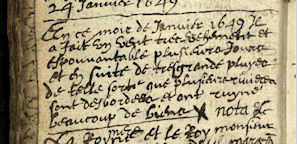 24 Janvier 1649
En ce mois de Janvier 1649 Il
a fait un vent tres vehement et
espouvantable plusieurs Jours
et en suite de tres grande pluyes
de telle sorte que plusieurs rivieres
sont desbordees et ont ruyné
beaucoup de biens X nota &
La Royne mere et le Roy monsieur